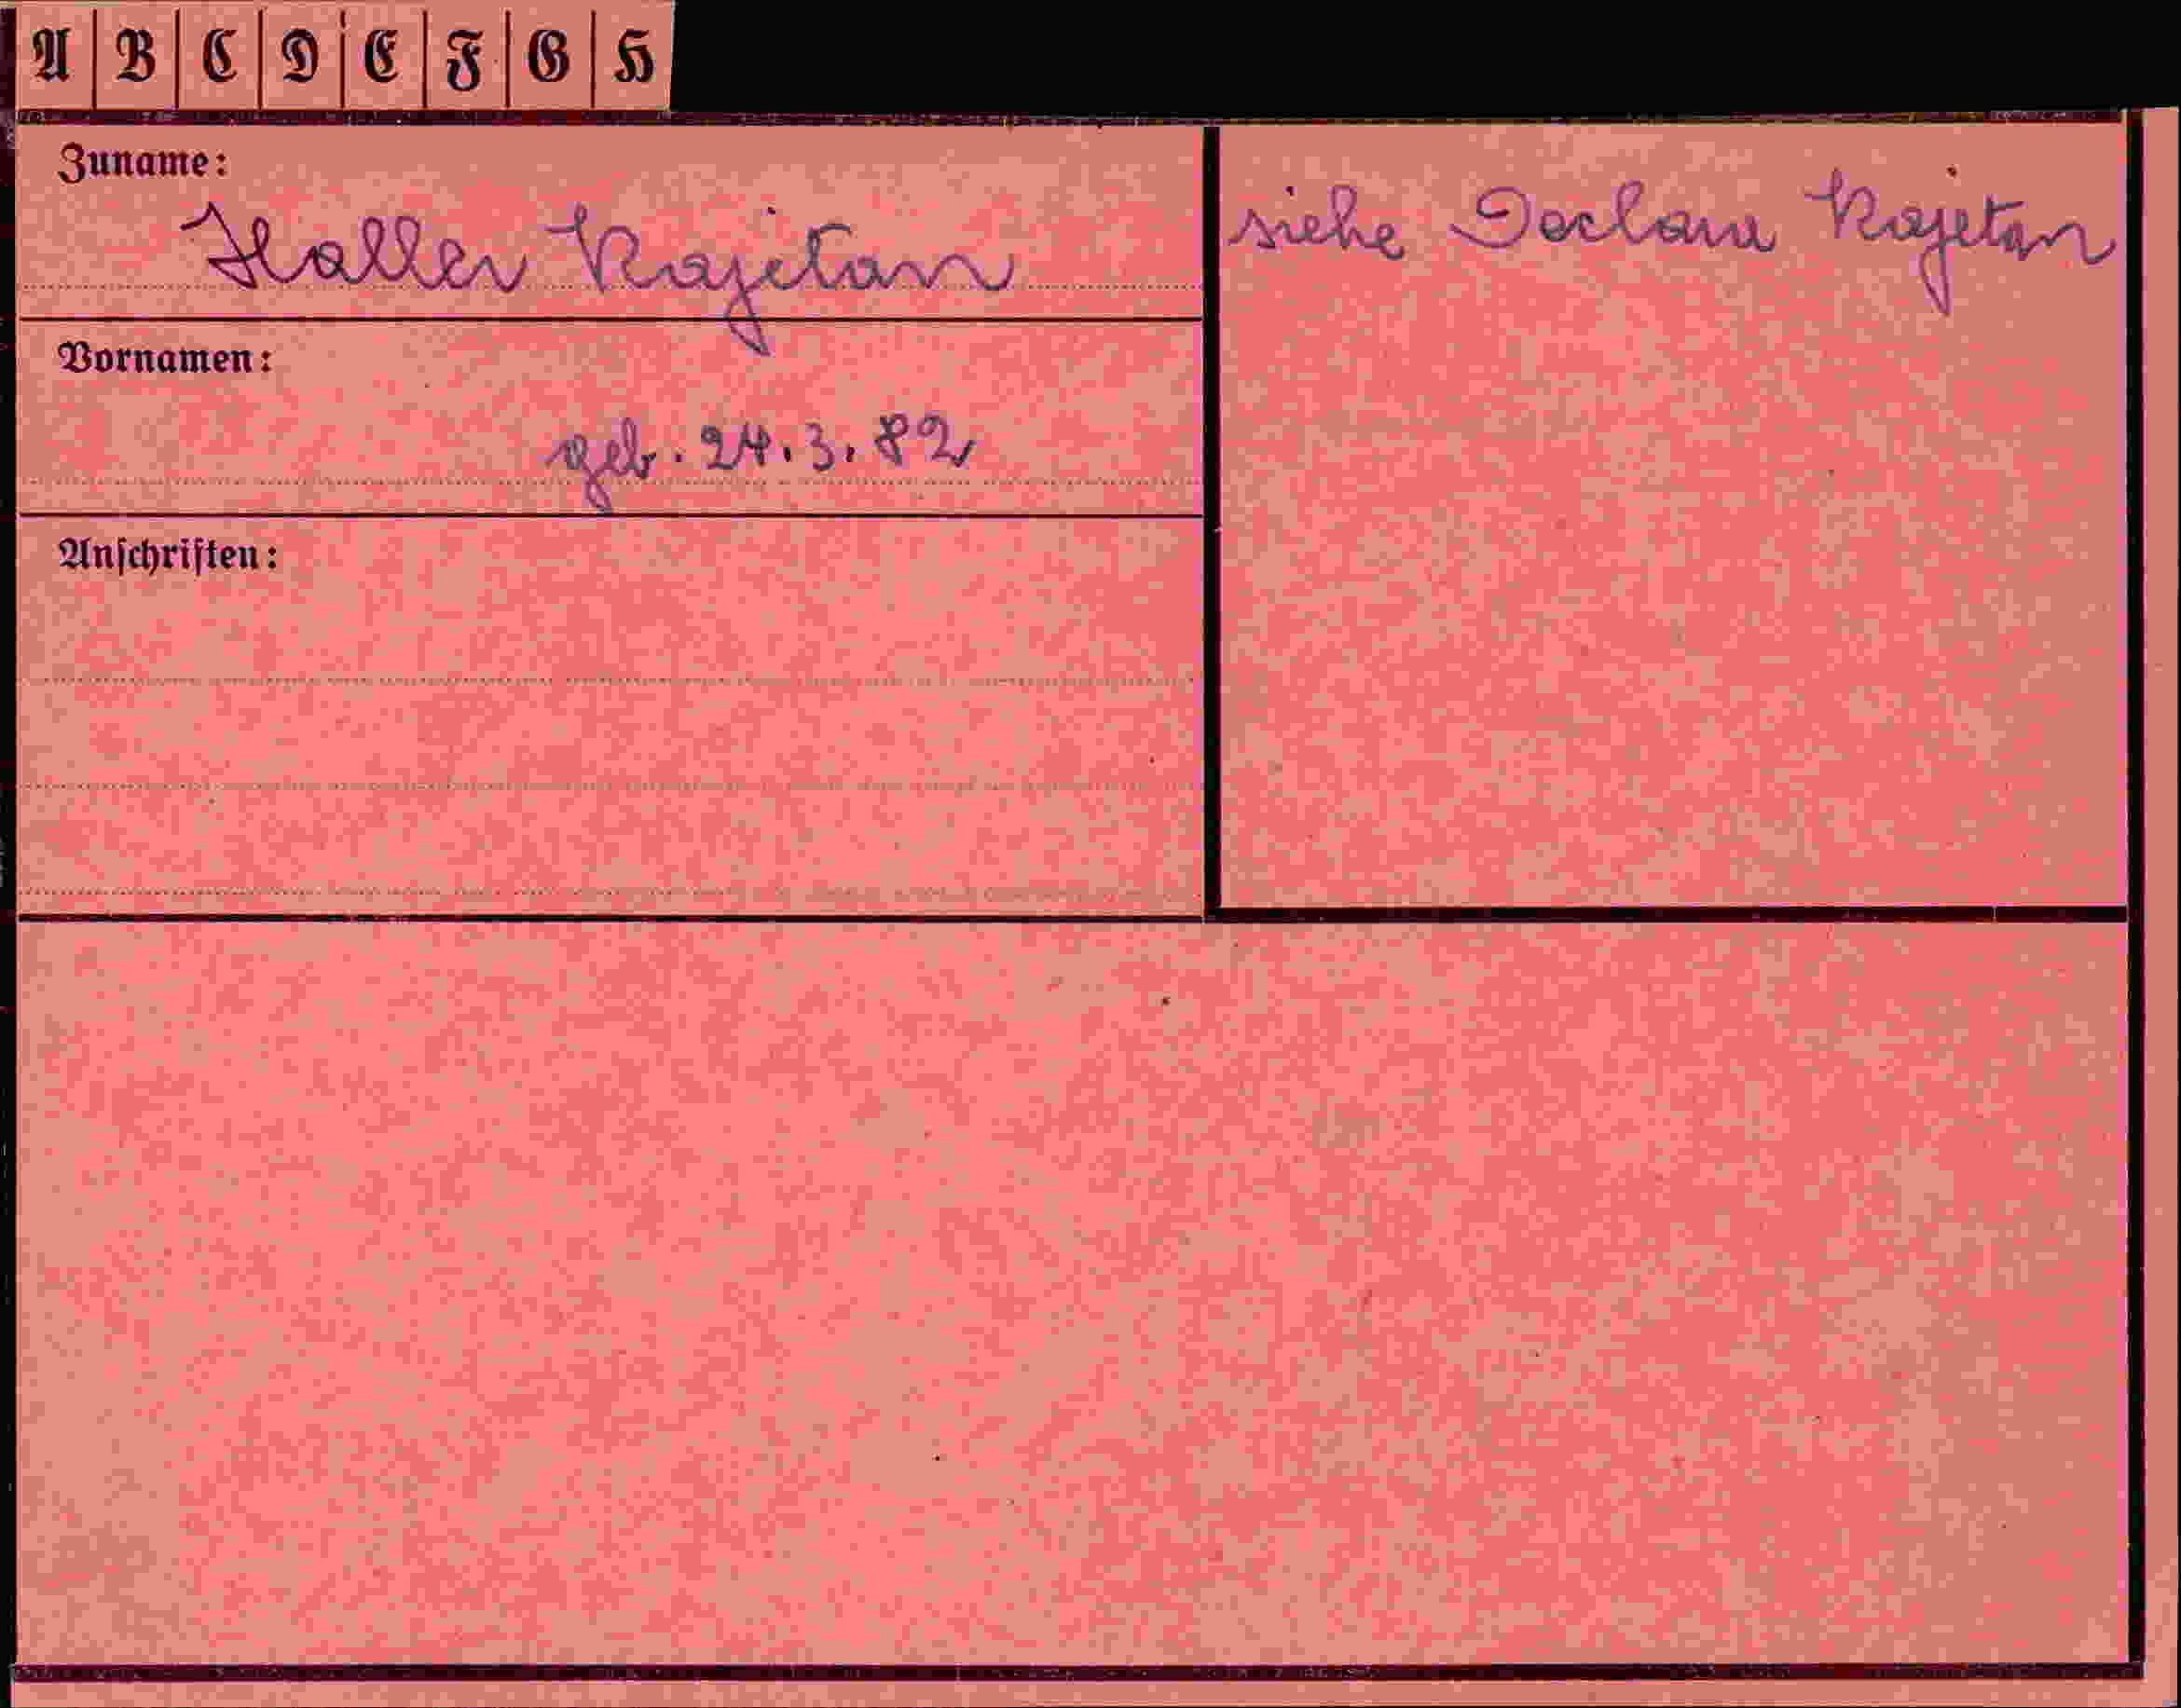 A B C D E F G H
Zuname:
Haller Kajetan
siehe Kajetan
Vornamen:
geb. 24.3.82
Anschriften: